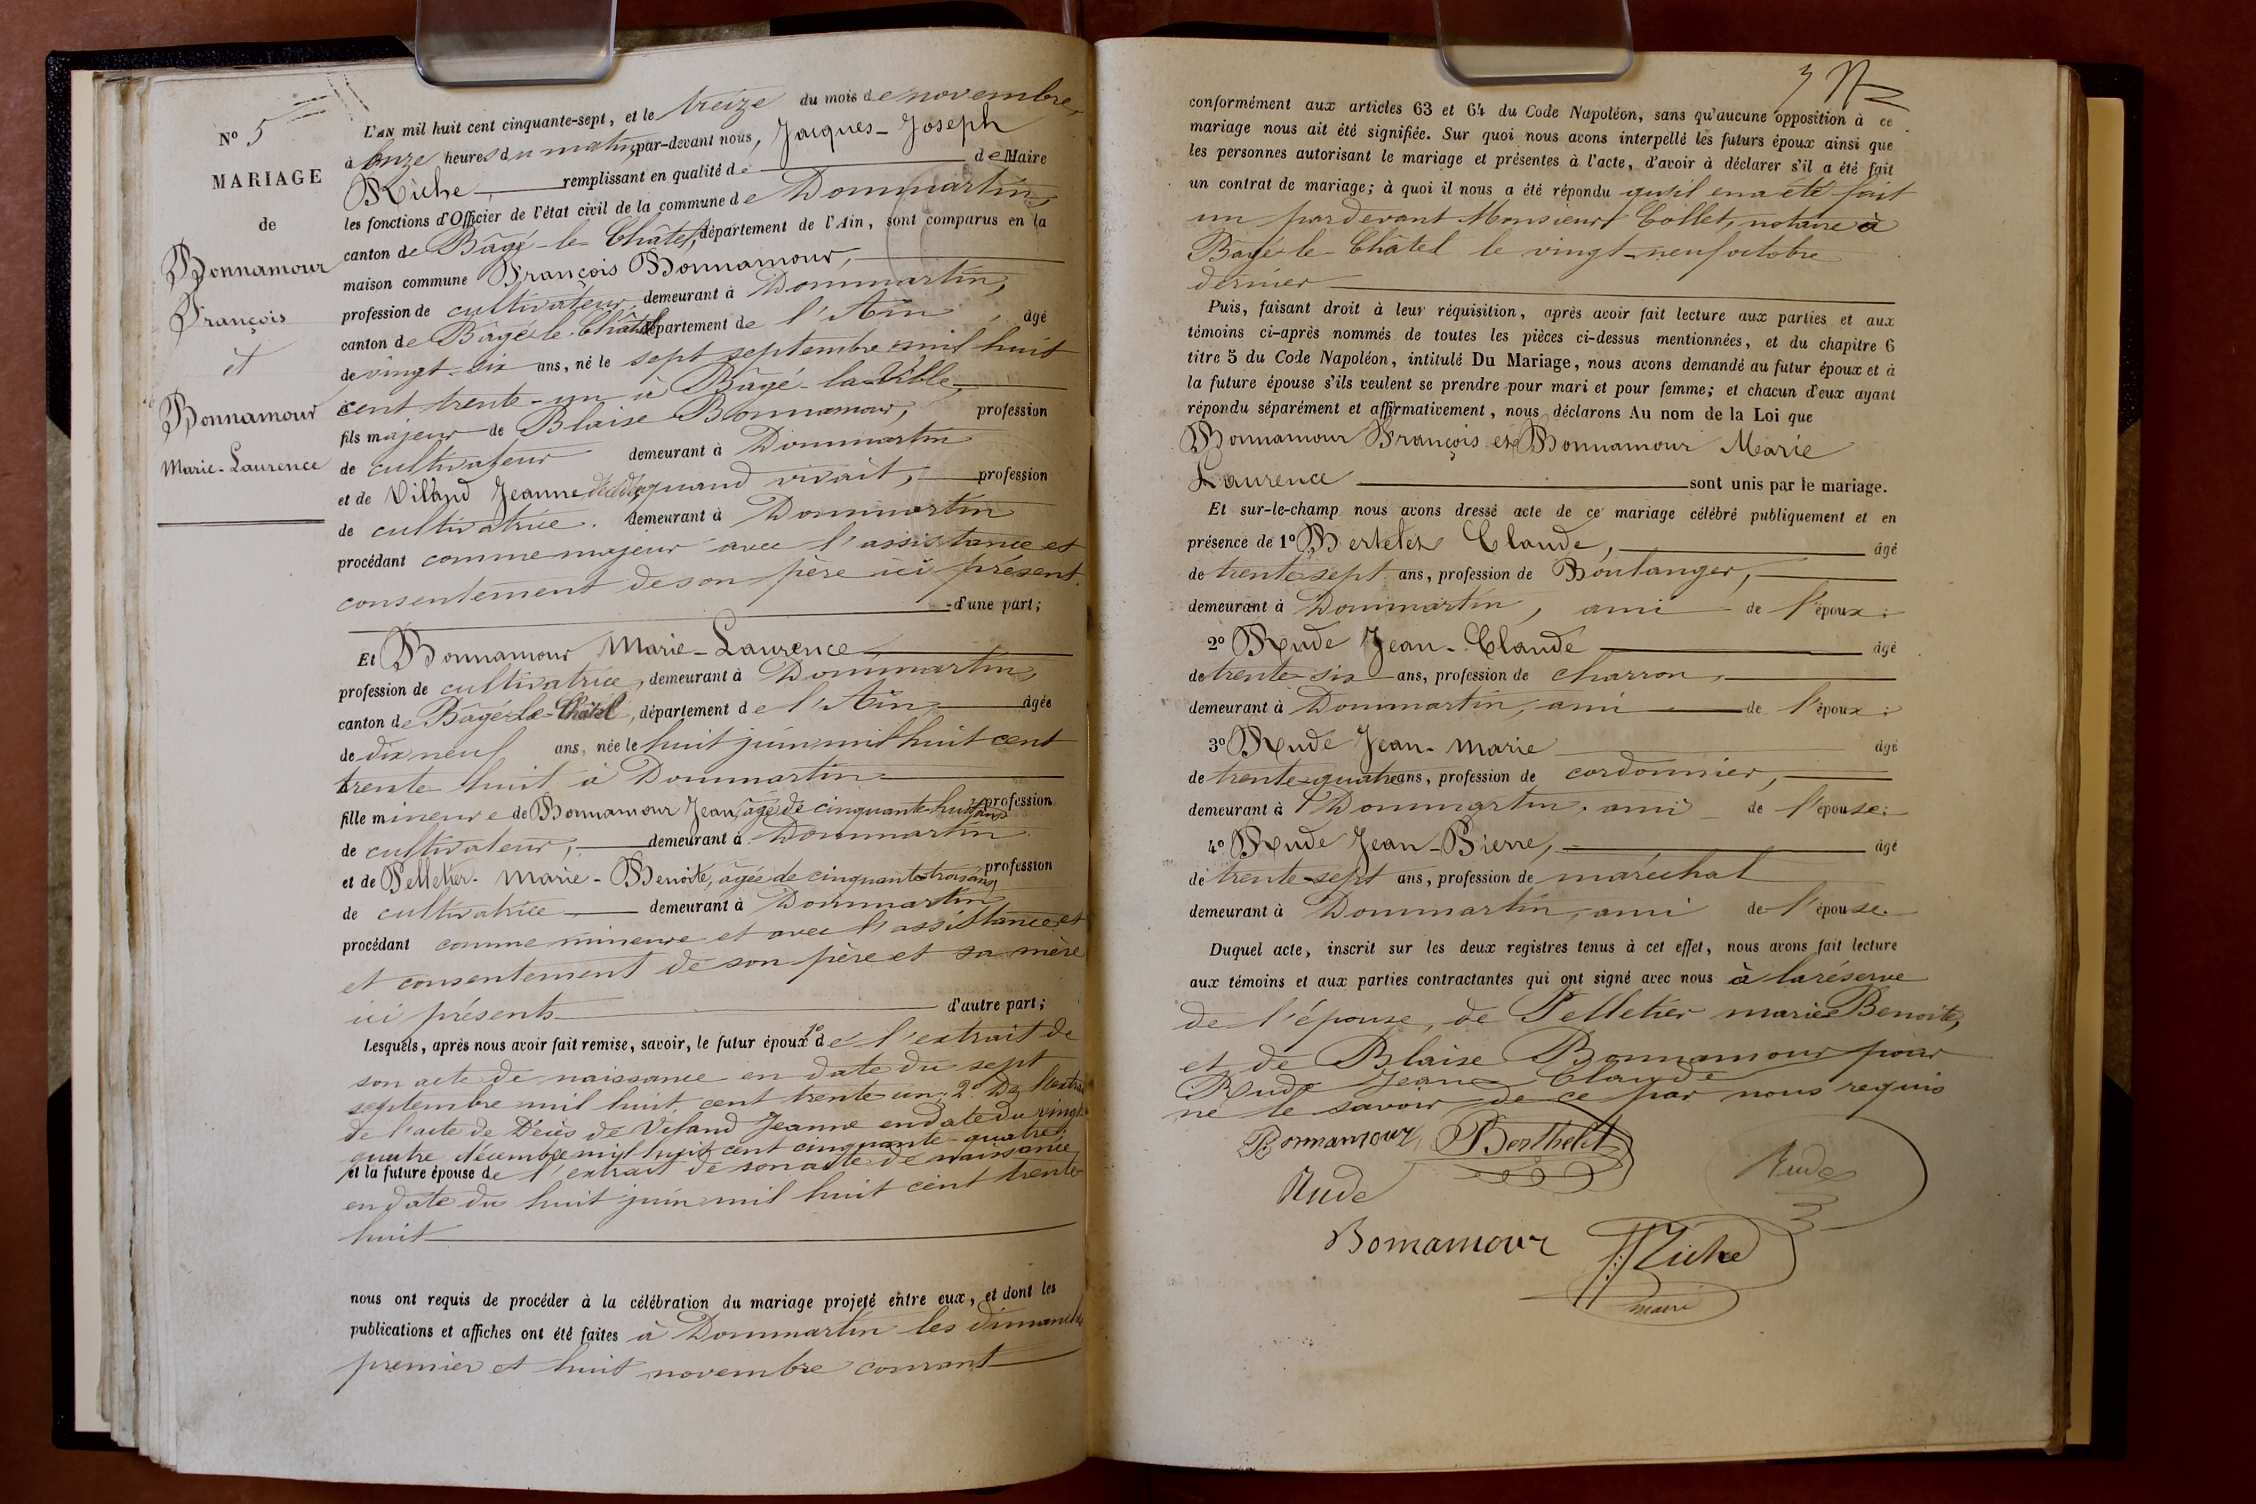 N° 5
MARIAGE
de
Bonnamour
François
et
Bonnamour
Marie-Laurence
L'AN mil huit cent cinquante-sept, et le treize du mois de novembre,
à onze heures du matin, par-devant nous, Jacques-Joseph
Riche, remplissant en qualité de Maire
les fonctions d'Officier de l'état civil de la commune de Dommartin,
canton de Bâgé-le-Châtel, département de l'Ain, sont comparus en la
maison commune François Bonnamour,
profession de cultivateur, demeurant à Dommartin,
canton de Bâgé-le-Châtel département de l'Ain, âgé
de vingt-six ans, né le sept septembre mil huit
cent trente-un à Bâgé-la-Ville,
fils majeur de Blaise Bonnamour, profession
de cultivateur demeurant à Dommartin
et de Viland Jeanne décédée, quand vivait, profession
de cultivatrice. demeurant à Dommartin
procédant comme majeur avec l'assistance et
consentement de son père ici présent.
d'une part;
Et Bonnamour Marie-Laurence
profession de cultivatrice, demeurant à Dommartin,
canton de Bâgé-le-Châtel, département de l'Ain âgée
de dix neuf ans, née le huit juin mil huit cent
trente huit à Dommartin
fille mineure de Bonnamour Jean, âgé de cinquante-huit ans profession
de cultivateur, demeurant à Dommartin
et de Pelletier Marie-Benoite, âgée de cinquante-trois ans, profession
de cultivatrice demeurant à Dommartin,
procédant comme mineure et avec l'assistance et
et consentement de son père et sa mère
ici présents d'autre part;
Lesquels, après nous avoir fait remise, savoir, le futur époux 1° de l'extrait de
son acte de naissance en date du sept
septembre mil huit cent trente un; 2° De l'extrait
de l'acte de Décès de Viland Jeanne en date du vingt
quatre décembre mil huit cent cinquante-quatre;
et la future épouse de l'extrait de son acte de naissance
en date du huit juin mil huit cent trente
huit
nous ont requis de procéder à la célébration du mariage projeté entre eux, et dont les
publications et affiches ont été faites à Dommartin les dimanches
premier et huit novembre courant
conformément aux articles 63 et 64 du Code Napoléon, sans qu'aucune opposition à ce
mariage nous ait été signifiée. Sur quoi nous avons interpellé les futurs époux ainsi que
les personnes autorisant le mariage et présentes à l'acte, d'avoir à déclarer s'il a été fait
un contrat de mariage; à quoi il nous a été répondu qu'il en a été fait
un pardevant Monsieur Collet, notaire à
Bâgé-le-Châtel le vingt-neuf octobre
dernier
Puis, faisant droit à leur réquisition, après avoir fait lecture aux parties et aux
témoins ci-après nommés de toutes les pièces ci-dessus mentionnées, et du chapitre 6
titre 5 du Code Napoléon, intitulé Du Mariage, nous avons demandé au futur époux et à
la future épouse s'ils veulent se prendre pour mari et pour femme; et chacun d'eux ayant
répondu séparément et affirmativement, nous déclarons Au nom de la Loi que
Bonnamour François et Bonnamour Marie
Laurence sont unis par le mariage.
Et sur-le-champ nous avons dressé acte de ce mariage célébré publiquement et en
présence de 1° Claude, âgé
de trente-sept ans, profession de Boulanger,
demeurant à Dommartin, ami de l'époux;
2° Rude Jean-Claude âgé
de trente-six ans, profession de charron,
demeurant à Dommartin, ami de l'époux;
3° Rude Jean-Marie âgé
de trente-quatre ans, profession de cordonnier,
demeurant à Dommartin, ami de l'épouse;
4° Rude Jean-Pierre, âgé
de trente-sept ans, profession de maréchal
demeurant à Dommartin, ami de l'épouse.
Duquel acte, inscrit sur les deux registres tenus à cet effet, nous avons fait lecture
aux témoins et aux parties contractantes qui ont signé avec nous à la réserve
de l'épouse, de Pelletier marie Benoite,
et de Blaise Bonnamour pour
Rude Jean Claude
ne le savoir de ce par nous requis
Bonnamour Berthelet
Rude Rude
Bonnamour Riche
maire